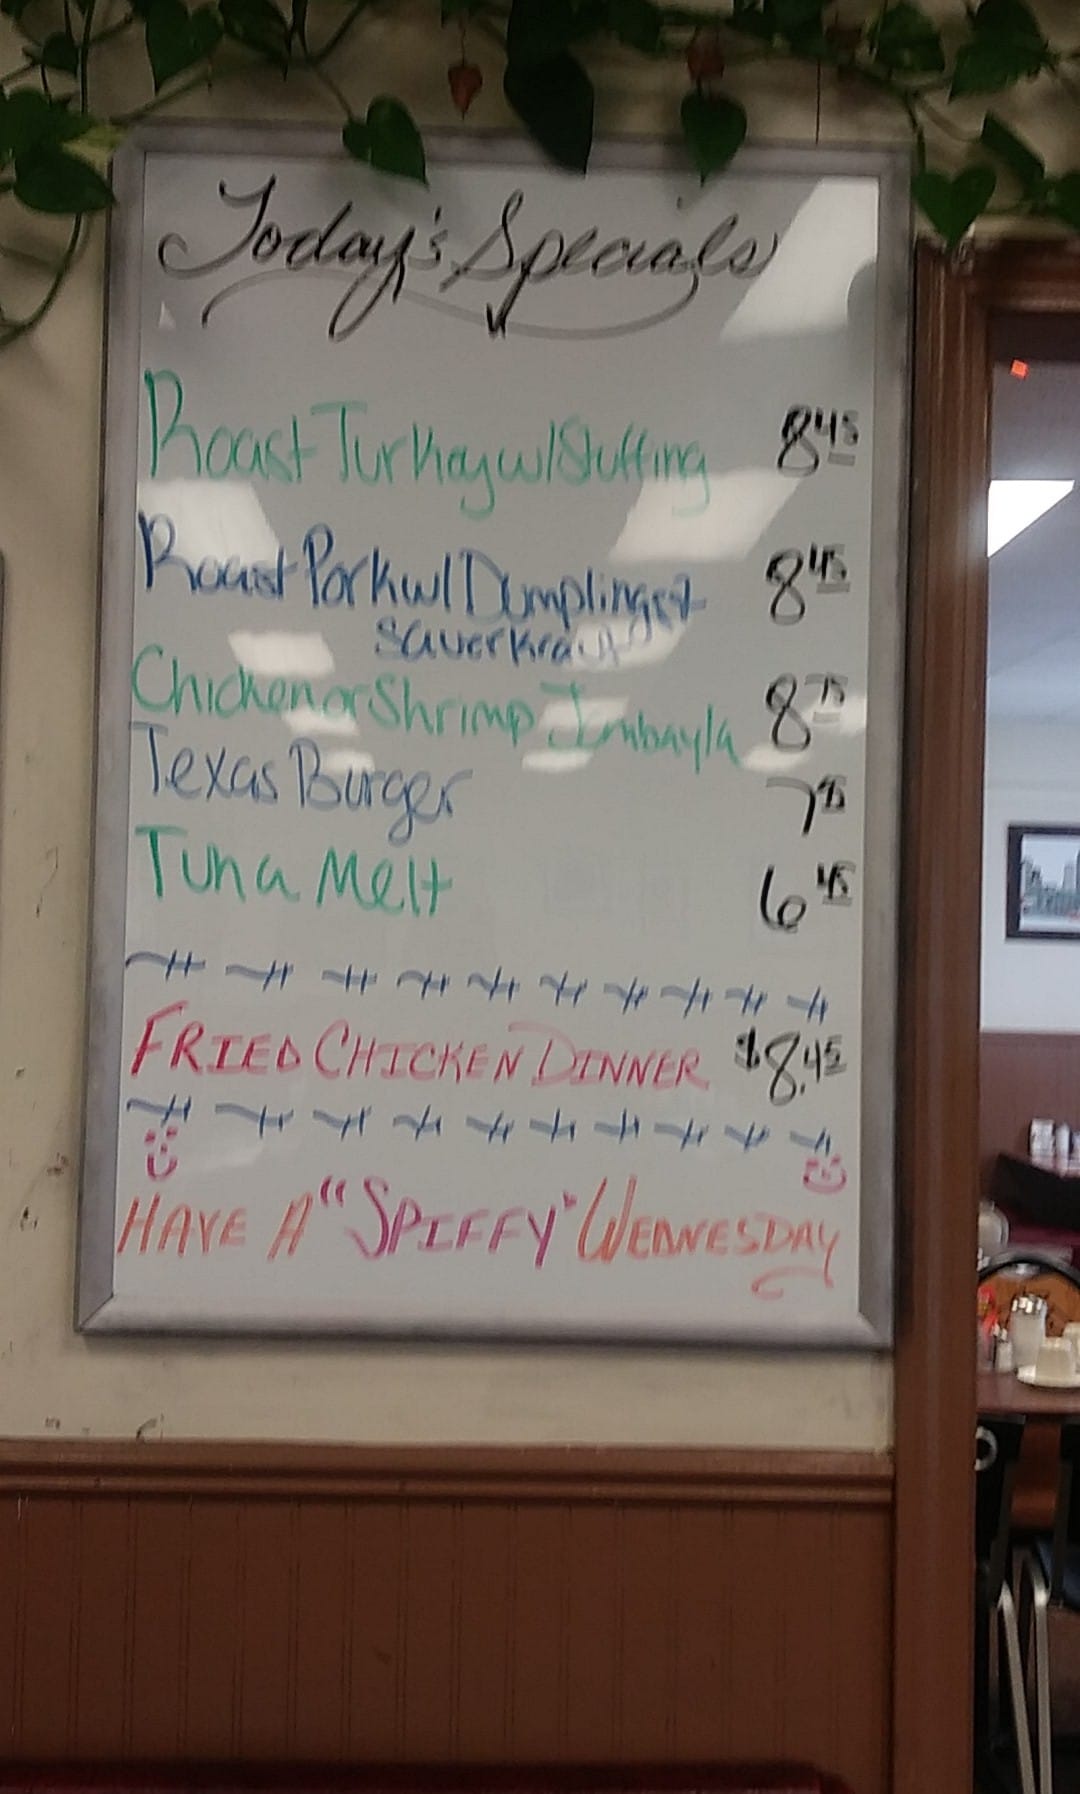 Today's Specials
Roast Turkey w/ Stuffing 8 45
Roast Pork w/ Dumplings & 8 45
Sauerkraut
Chicken or Shrimp Jambayla 8 75
Texas Burger 7 95
Tuna Melt 6 45
FRIED CHICKEN DINNER $8.45
HAVE A "SPIFFY" WEDNESDAY